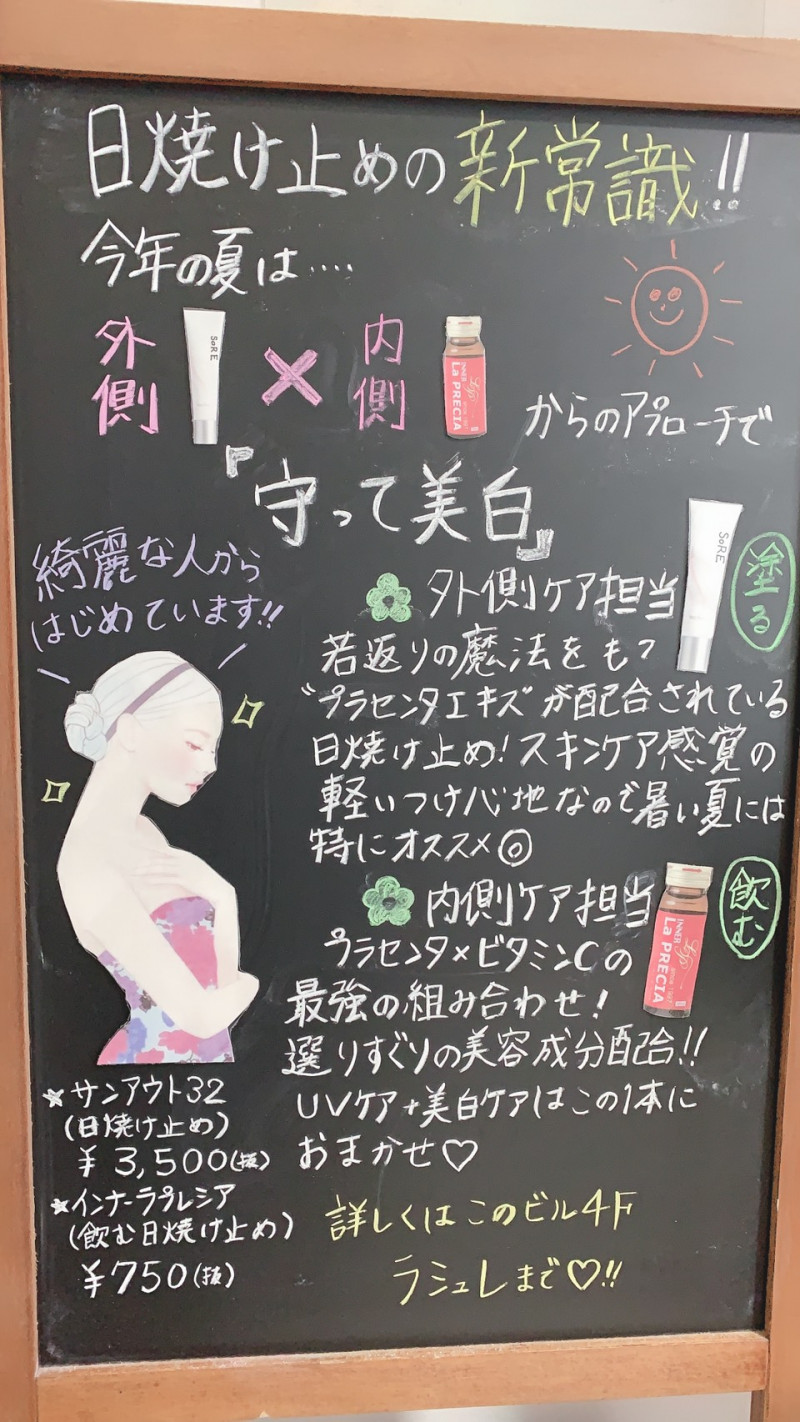 日焼け止めの新常識!!
今年の夏は‥‥
外側 SoRE × 内側 INNER La PRECIA
からのアプローチで
『守って美白』
綺麗な人から
はじめています!!
SoRE
塗る
外側ケア担当
若返りの魔法をもつ
“プラセンタエキズ”が配合されている
日焼け止め!スキンケア感覚の
軽いつけ心地なので暑い夏には
特にオススメ◎
内側ケア担当
INNER La PRECIA
飲む
プラセンタ×ビタミンCの
最強の組み合わせ!
選りすぐりの美容成分配合!!
UVケア+美白ケアはこの1本に
おまかせ♡
★サンアウト32
(日焼け止め)
¥3,500(抜)
★インナーラプレシア
(飲む日焼け止め)
¥750(抜)
詳しくはこのビル4F
ラシュレまで♡!!